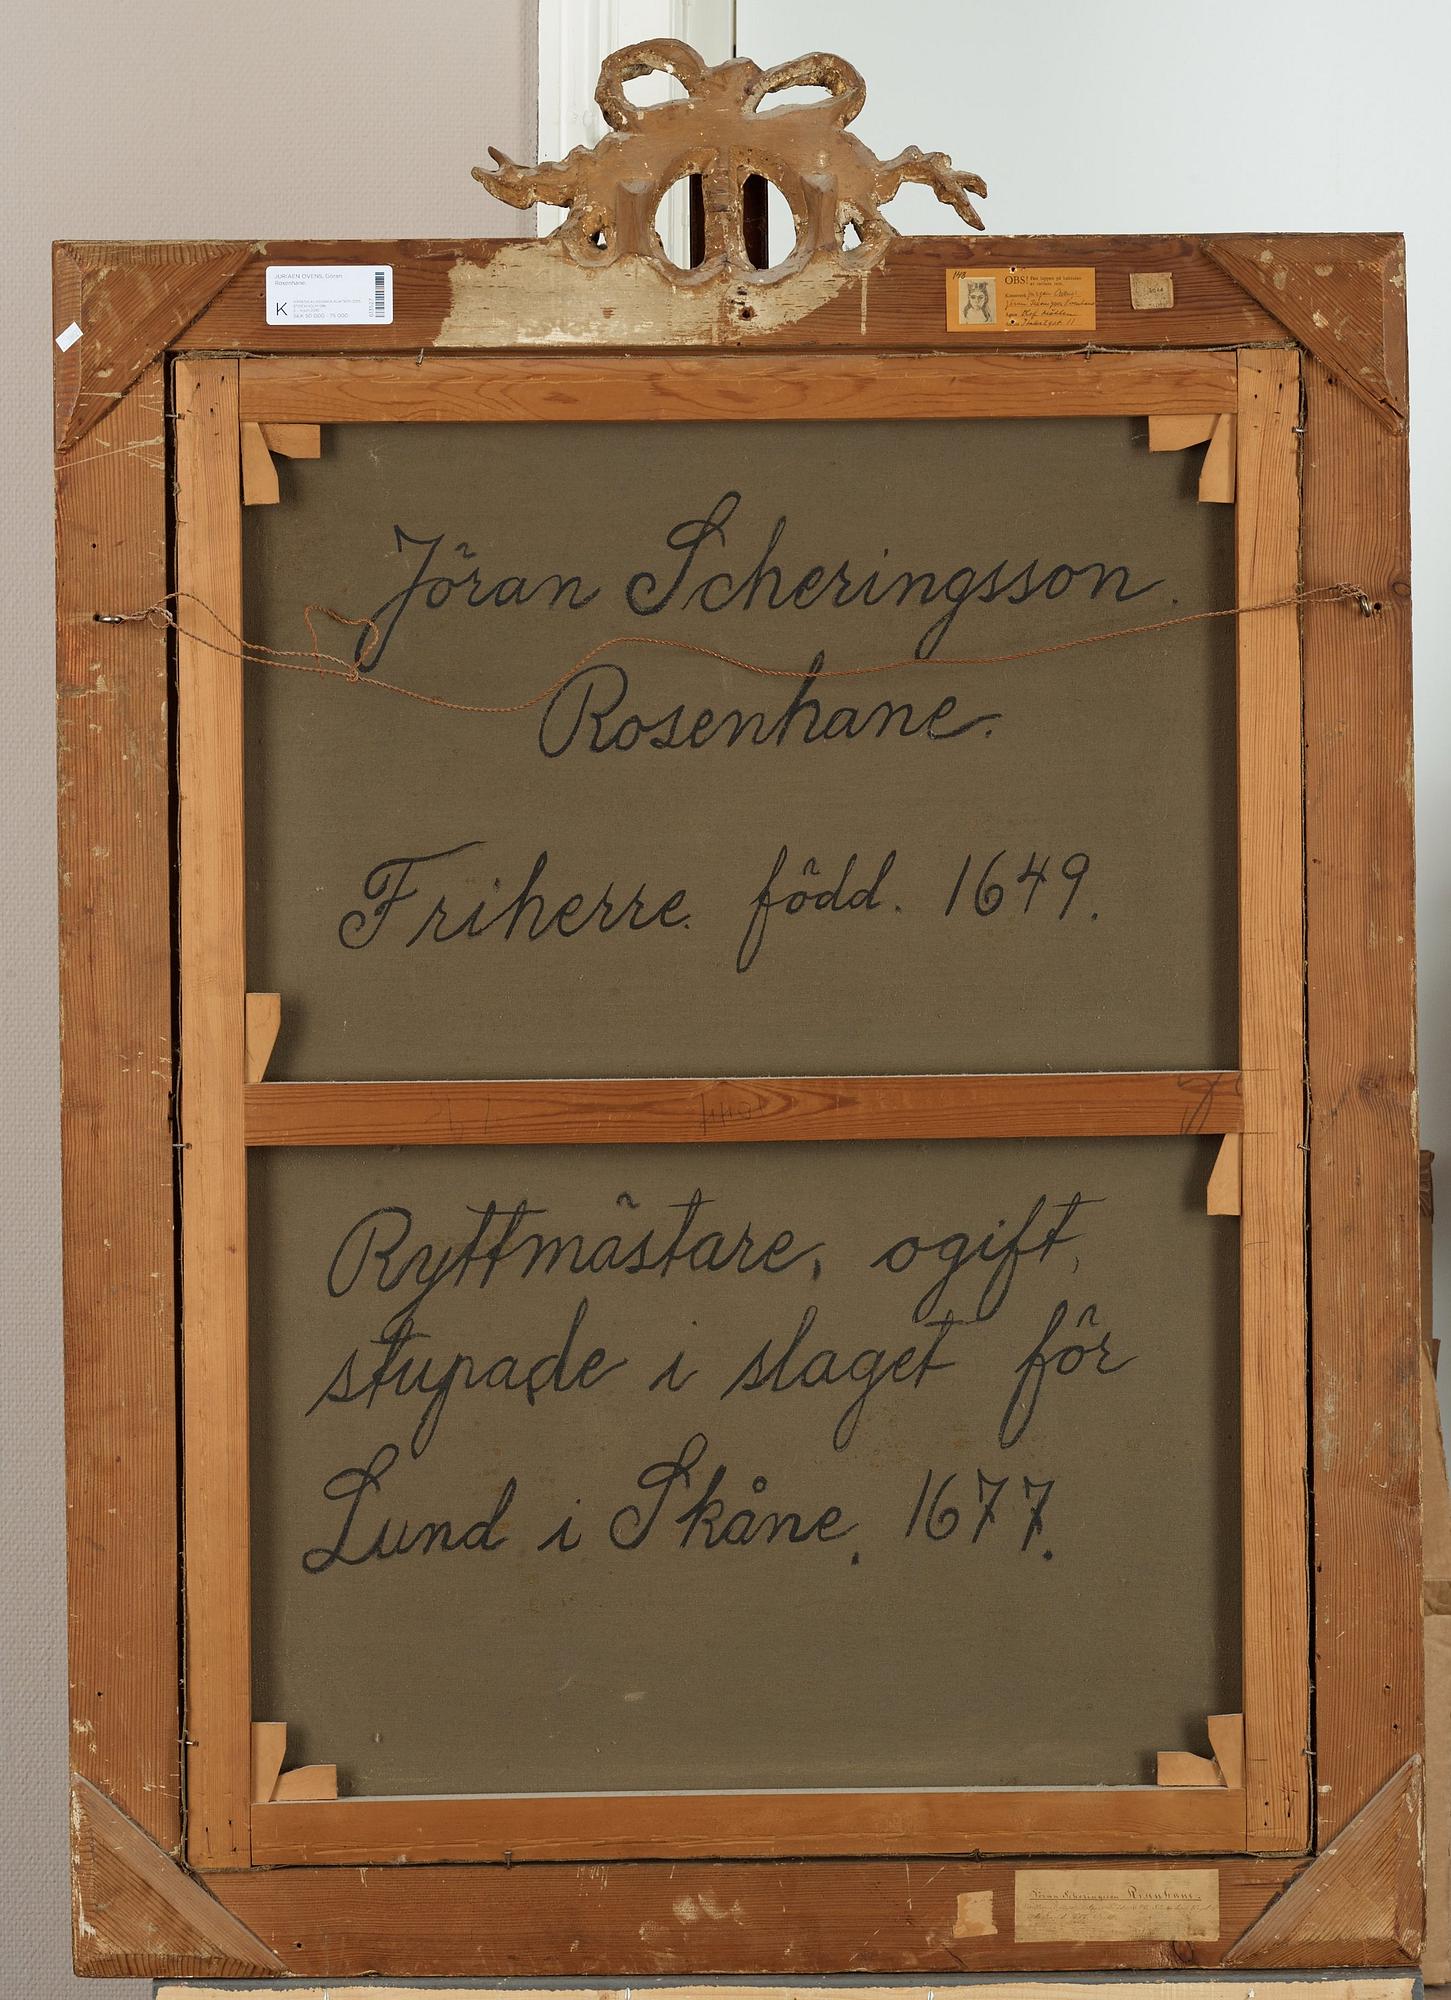 JÜRIAEN OVENS, Göran
Rosenhane.
K
SEK 50 000 - 75 000
148
OBS!
3614
Jöran Scheringsson.
Rosenhane.
Friherre. född. 1649.
Ryttmästare, ogift,
stupade i slaget för
Lund i Skåne. 1677.
Jöran Scheringsson Rosenhane.